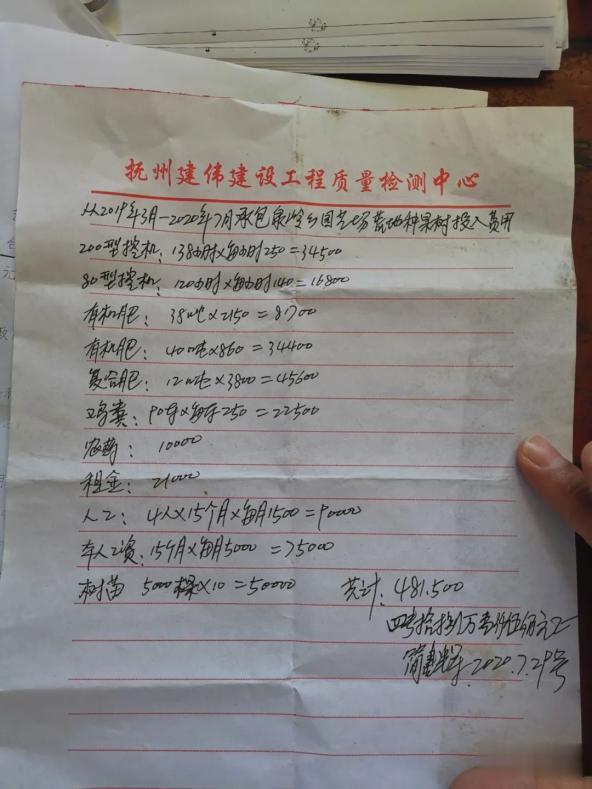 抚州建伟建设工程质量检测中心
从2019年3月-2020年7月承包泉岭乡园艺场荒地种果树投入费用
200型挖机：138小时×每小时250=34500
80型挖机：120小时×每小时140=16800
有机肥：38吨×2150=81700
有机肥：40吨×860=34400
复合肥：12吨×3800=45600
鸡粪：90车×每车250=22500
农药：10000
租金：21000
人工：4人×15个月×每月1500=90000
本人工资：15个月×每月5000=75000
树苗 5000棵×10=50000 共计：481.500
四拾捌万壹仟伍佰元正
2020.7.29号